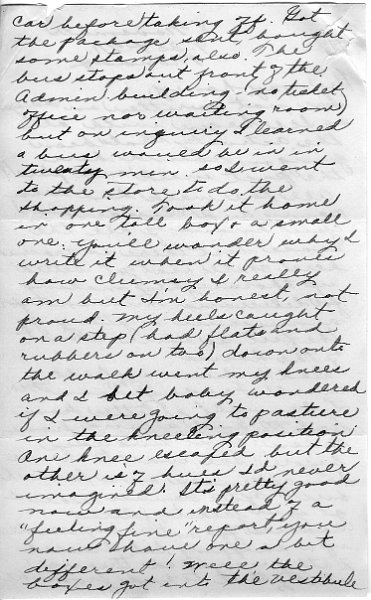 car before taking off. Got
the package sent, bought
some stamps, also. The
bus stops out front of the
Admin building - no ticket
office nor waiting room)
but on inquiry I learned
a bus would be in in
twenty min. so I went
to the store to do the
shopping. Took it home
in one tall box & a small
one. you'll wander why I
write it when it proves
how clumsy I really
am but I'm honest, not
proud. my heels caught
on a step (had flats and
rubbers on too) down onto
the walk went my knees
and I bet baby wondered
if I were going to pasture
in the kneeling position.
One knee escaped but the
other is of hues I'd never
imagined! It's pretty good
now and instead of a
"feeling fine" report, you
now have one a bit
different! Well, the
boxes got into the vestibule